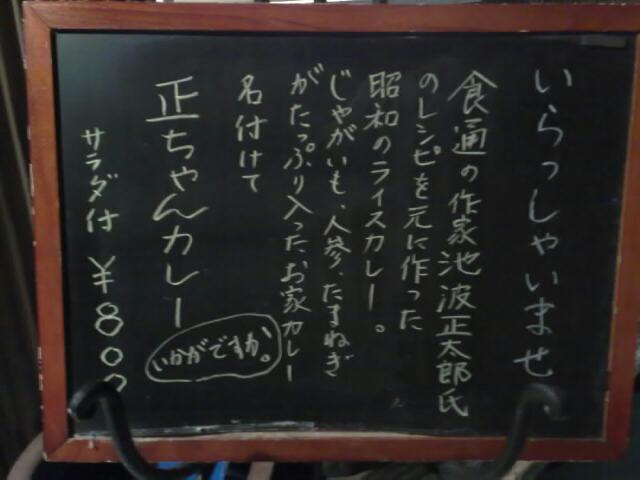 いらっしゃいませ
食通の作家池波正太郎氏
のレシピを元に作った
昭和のライスカレー。
じゃがいも、人参、たまねぎ
がたっぷり入った、お家カレー
名付けて
正ちゃんカレー
いかがですか。
サラダ付 ¥800